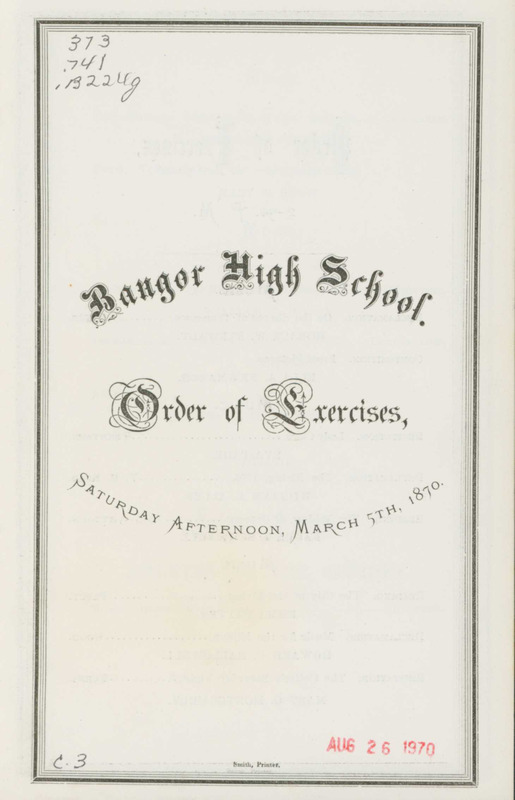 373
.741
.B224g
Bangor High School.
Order of Exercises,
SATURDAY AFTERNOON, MARCH 5TH, 1870.
AUG 26 1970
C. 3
Smith, Printer.